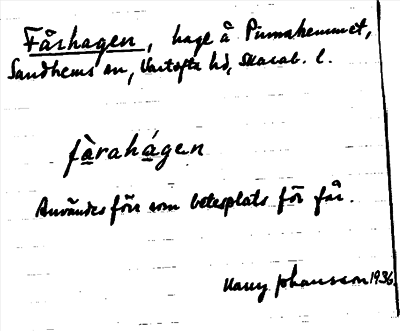 Fårhagen, hage å Pirnahemmet,
Sandhems sn, Vartofta hd, Skarab. l.
fàrahágen
Användes förr som betesplats för får.
Harry Johansson 1936.